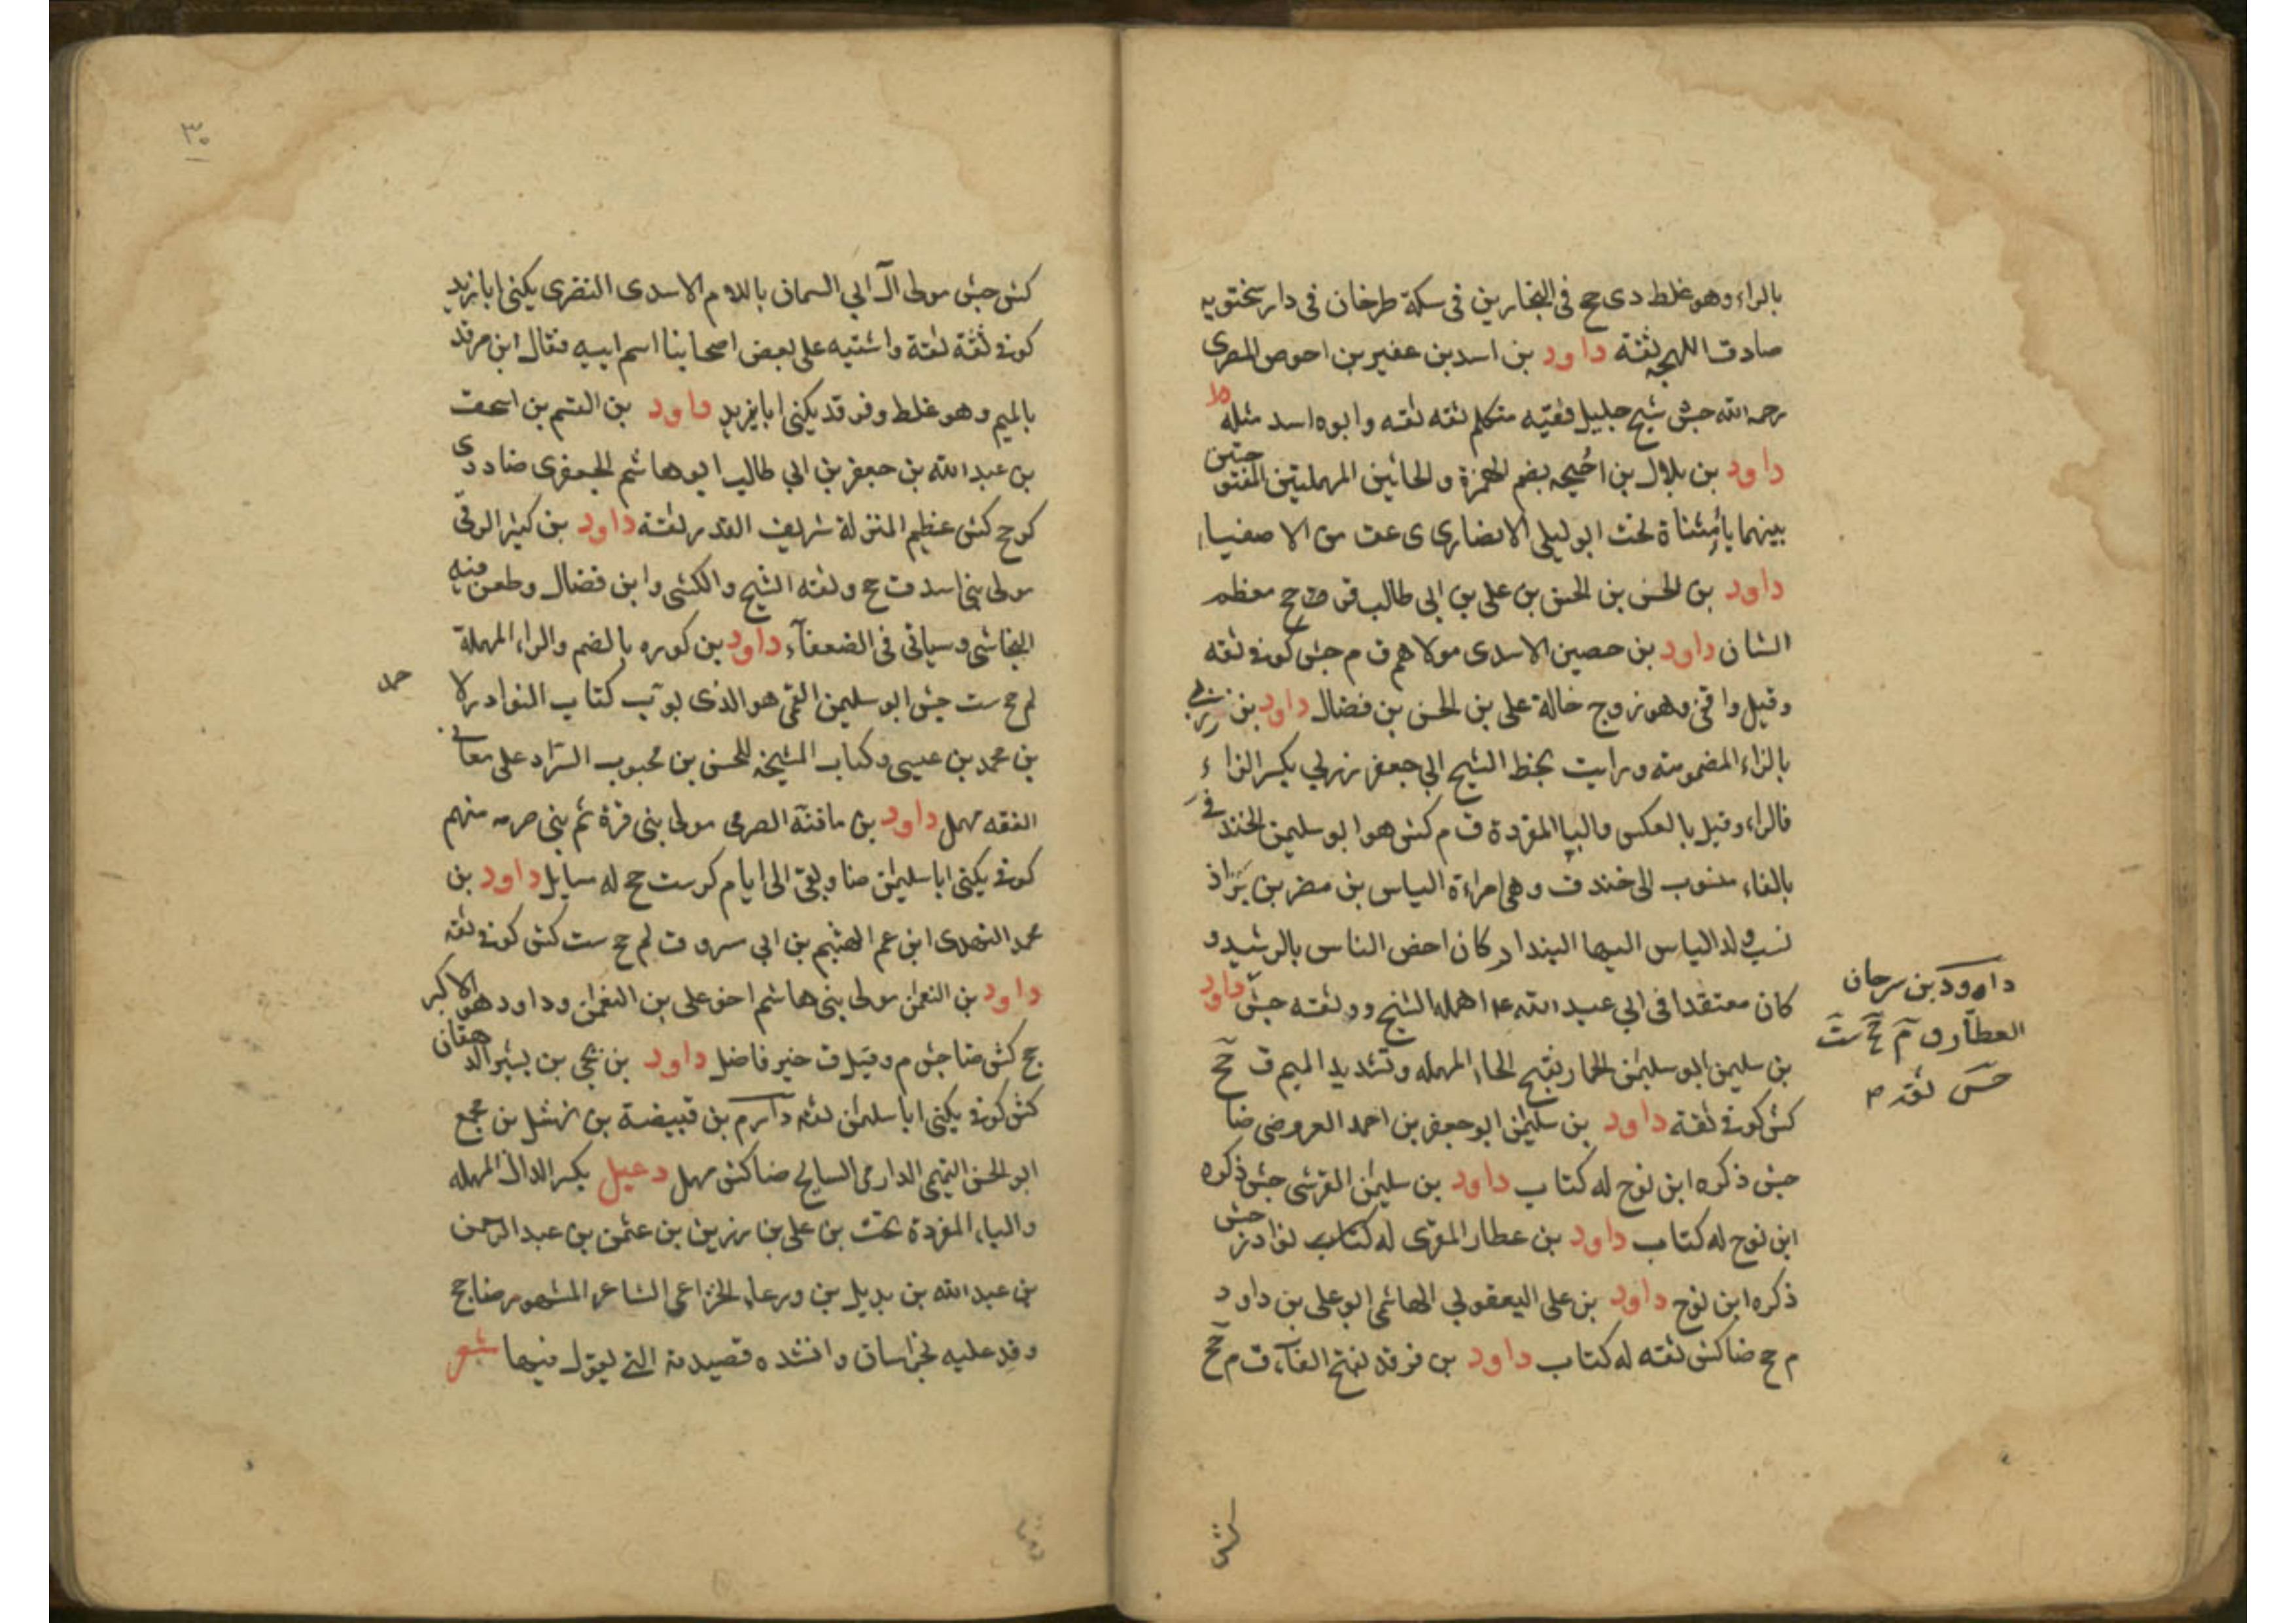 بالراء وهو غلط دى جح فى النجارين فى سكة طرخان فى دار سختويه
صادق اللهجه ثقه داود بن اسد بن عفير بن احوص المصرى
رحمه الله جش شيخ جليل فقيه متكلم ثقه ثقه وابوه اسد مثله
داود بن بلال بن احيحه بضم الهمزة والحائين المهملتين المفتوحتين
بينهما ياء مثناة تحت ابو ليلى الانصارى ى عق من الاصفياء
داود بن الحسن بن الحسن بن على بن ابي طالب قر ق جح معظم
الشان داود بن حصين الاسدى مولاهم ق م جش كوفى ثقه
وقيل واقفى وهو زوج خالة على بن الحسن بن فضال داود بن زربي
بالزاء المضمومة ورايت بخط الشيخ ابي جعفر زربي بكسر الزاء
فالراء وقيل بالعكس والباء المفردة ق م كش هو ابو سليمن الخندفى
بالفاء منسوب الى خندف وهى امراءة الياس بن مضر بن نزار
نسب ولد الياس اليها البندار كان اخص الناس بالرشيد و
كان معتقدا فى ابي عبد الله ع اهمله الشيخ ووثقه جش داود
بن سليمن ابو سليمن الحمار بفتح الحاء المهمله وتشديد الميم ق جح
كش كوفى ثقة داود بن سليمن ابو جعفر بن احمد العروضى ضا
جش ذكره ابن نوح له كتاب داود بن سليمن القرشى جش ذكره
ابن نوح له كتاب داود بن عطار المقرى له كتاب نوادر جش
ذكره ابن نوح داود بن على اليعقوبي الهاشمى ابو على بن داود
م جح ضا كش ثقه له كتاب داود بن فرقد بفتح الفاء ق م جح
داوود بن سرحان
العطار ق م جح ست
جش ثقه م
كش
٣٠
كش جش مولى آل ابي السمان باللام الاسدى النضرى يكنى ابا يزيد
كوفى ثقة ثقة واشتبه على بعض اصحابنا اسم ابيه فقال ابن مرقد
بالميم وهو غلط وفرقد يكنى ابا يزيد داود بن القسم بن اسحق
بن عبد الله بن جعفر بن ابي طالب ابو هاشم الجعفرى ضا د دى
كر جح كش عظيم المنزلة شريف القدر ثقة داود بن كثير الرقى
مولى بنى اسد ق جح وثقه الشيخ والكشى وابن فضال وطعن فيه
النجاشى وسياتى فى الضعفاء داود بن كوره بالضم والراء المهملة
لم جح ست جش ابو سليمن القمى هو الذى بوب كتاب النوادر لاحمد
بن محمد بن عيسى وكتاب المشيخه للحسن بن محبوب السراد على معانى
الفقه مهمل داود بن مافنه الصرمى مولى بنى قرة ثم بنى صرمه منهم
كوفى يكنى ابا سليمان ضا وبقى الى ايام كر ست جح له مسايل داود بن
محمد النهدى ابن عم الهيثم بن ابي مسروق لم جح ست كش كوفى ثقه
داود بن النعمن مولى بنى هاشم اخو على بن النعمن وداود هو الاكبر
جح كش ضا جش م وقيل ق خير فاضل داود بن يحيى بن بشير الدهقان
كش كوفى يكنى ابا سليمن ثقه دارم بن قبيضة بن نهشل بن مجمع
ابو الحسن التميمى الدارمى السايح ضا كش مهمل دعبل بكسر الدال المهمله
والباء المفردة تحت بن على بن رزين بن عثمن بن عبد الرحمن
بن عبد الله بن بديل بن ورعاء الخزاعى الشاعر المشهور ضا جح
وفد عليه بخراسان وانشده قصيدته التى يقول فيها شعر